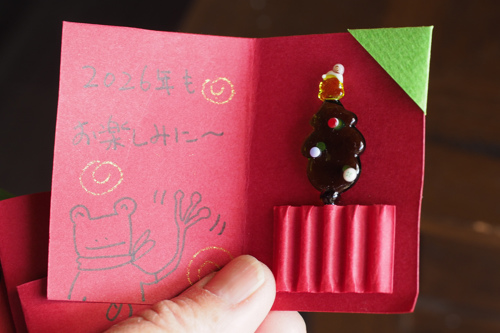 2026年も
お楽しみに〜
め